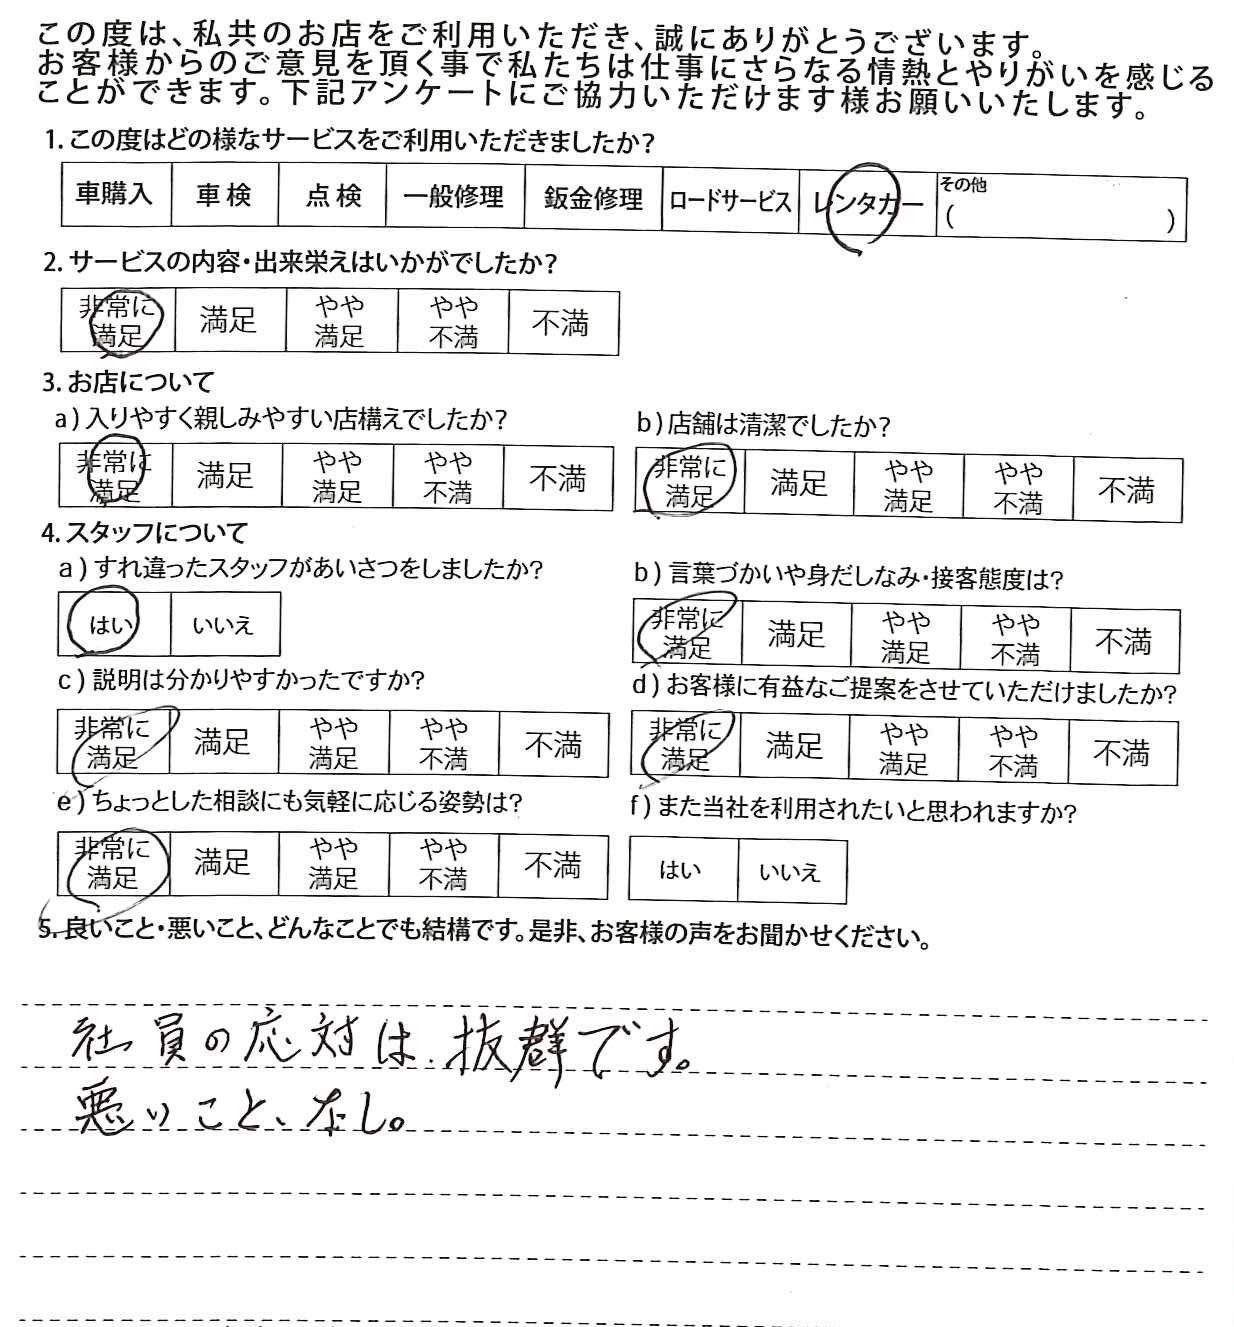 この度は、私共のお店をご利用いただき、誠にありがとうございます。
お客様からのご意見を頂く事で私たちは仕事にさらなる情熱とやりがいを感じる
ことができます。下記アンケートにご協力いただけます様お願いいたします。
1.この度はどの様なサービスをご利用いただきましたか?
車購入 車検 点検 一般修理 鈑金修理 ロードサービス レンタカー その他
( )
2.サービスの内容・出来栄えはいかがでしたか?
非常に満足 満足 やや満足 やや不満 不満
3.お店について
a)入りやすく親しみやすい店構えでしたか?
非常に満足 満足 やや満足 やや不満 不満
b)店舗は清潔でしたか?
非常に満足 満足 やや満足 やや不満 不満
4.スタッフについて
a)すれ違ったスタッフがあいさつをしましたか?
はい いいえ
b)言葉づかいや身だしなみ・接客態度は?
非常に満足 満足 やや満足 やや不満 不満
c)説明は分かりやすかったですか?
非常に満足 満足 やや満足 やや不満 不満
d)お客様に有益なご提案をさせていただけましたか?
非常に満足 満足 やや満足 やや不満 不満
e)ちょっとした相談にも気軽に応じる姿勢は?
非常に満足 満足 やや満足 やや不満 不満
f)また当社を利用されたいと思われますか?
はい いいえ
5.良いこと・悪いこと、どんなことでも結構です。是非、お客様の声をお聞かせください。
社員の応対は、抜群です。
悪いこと、なし。